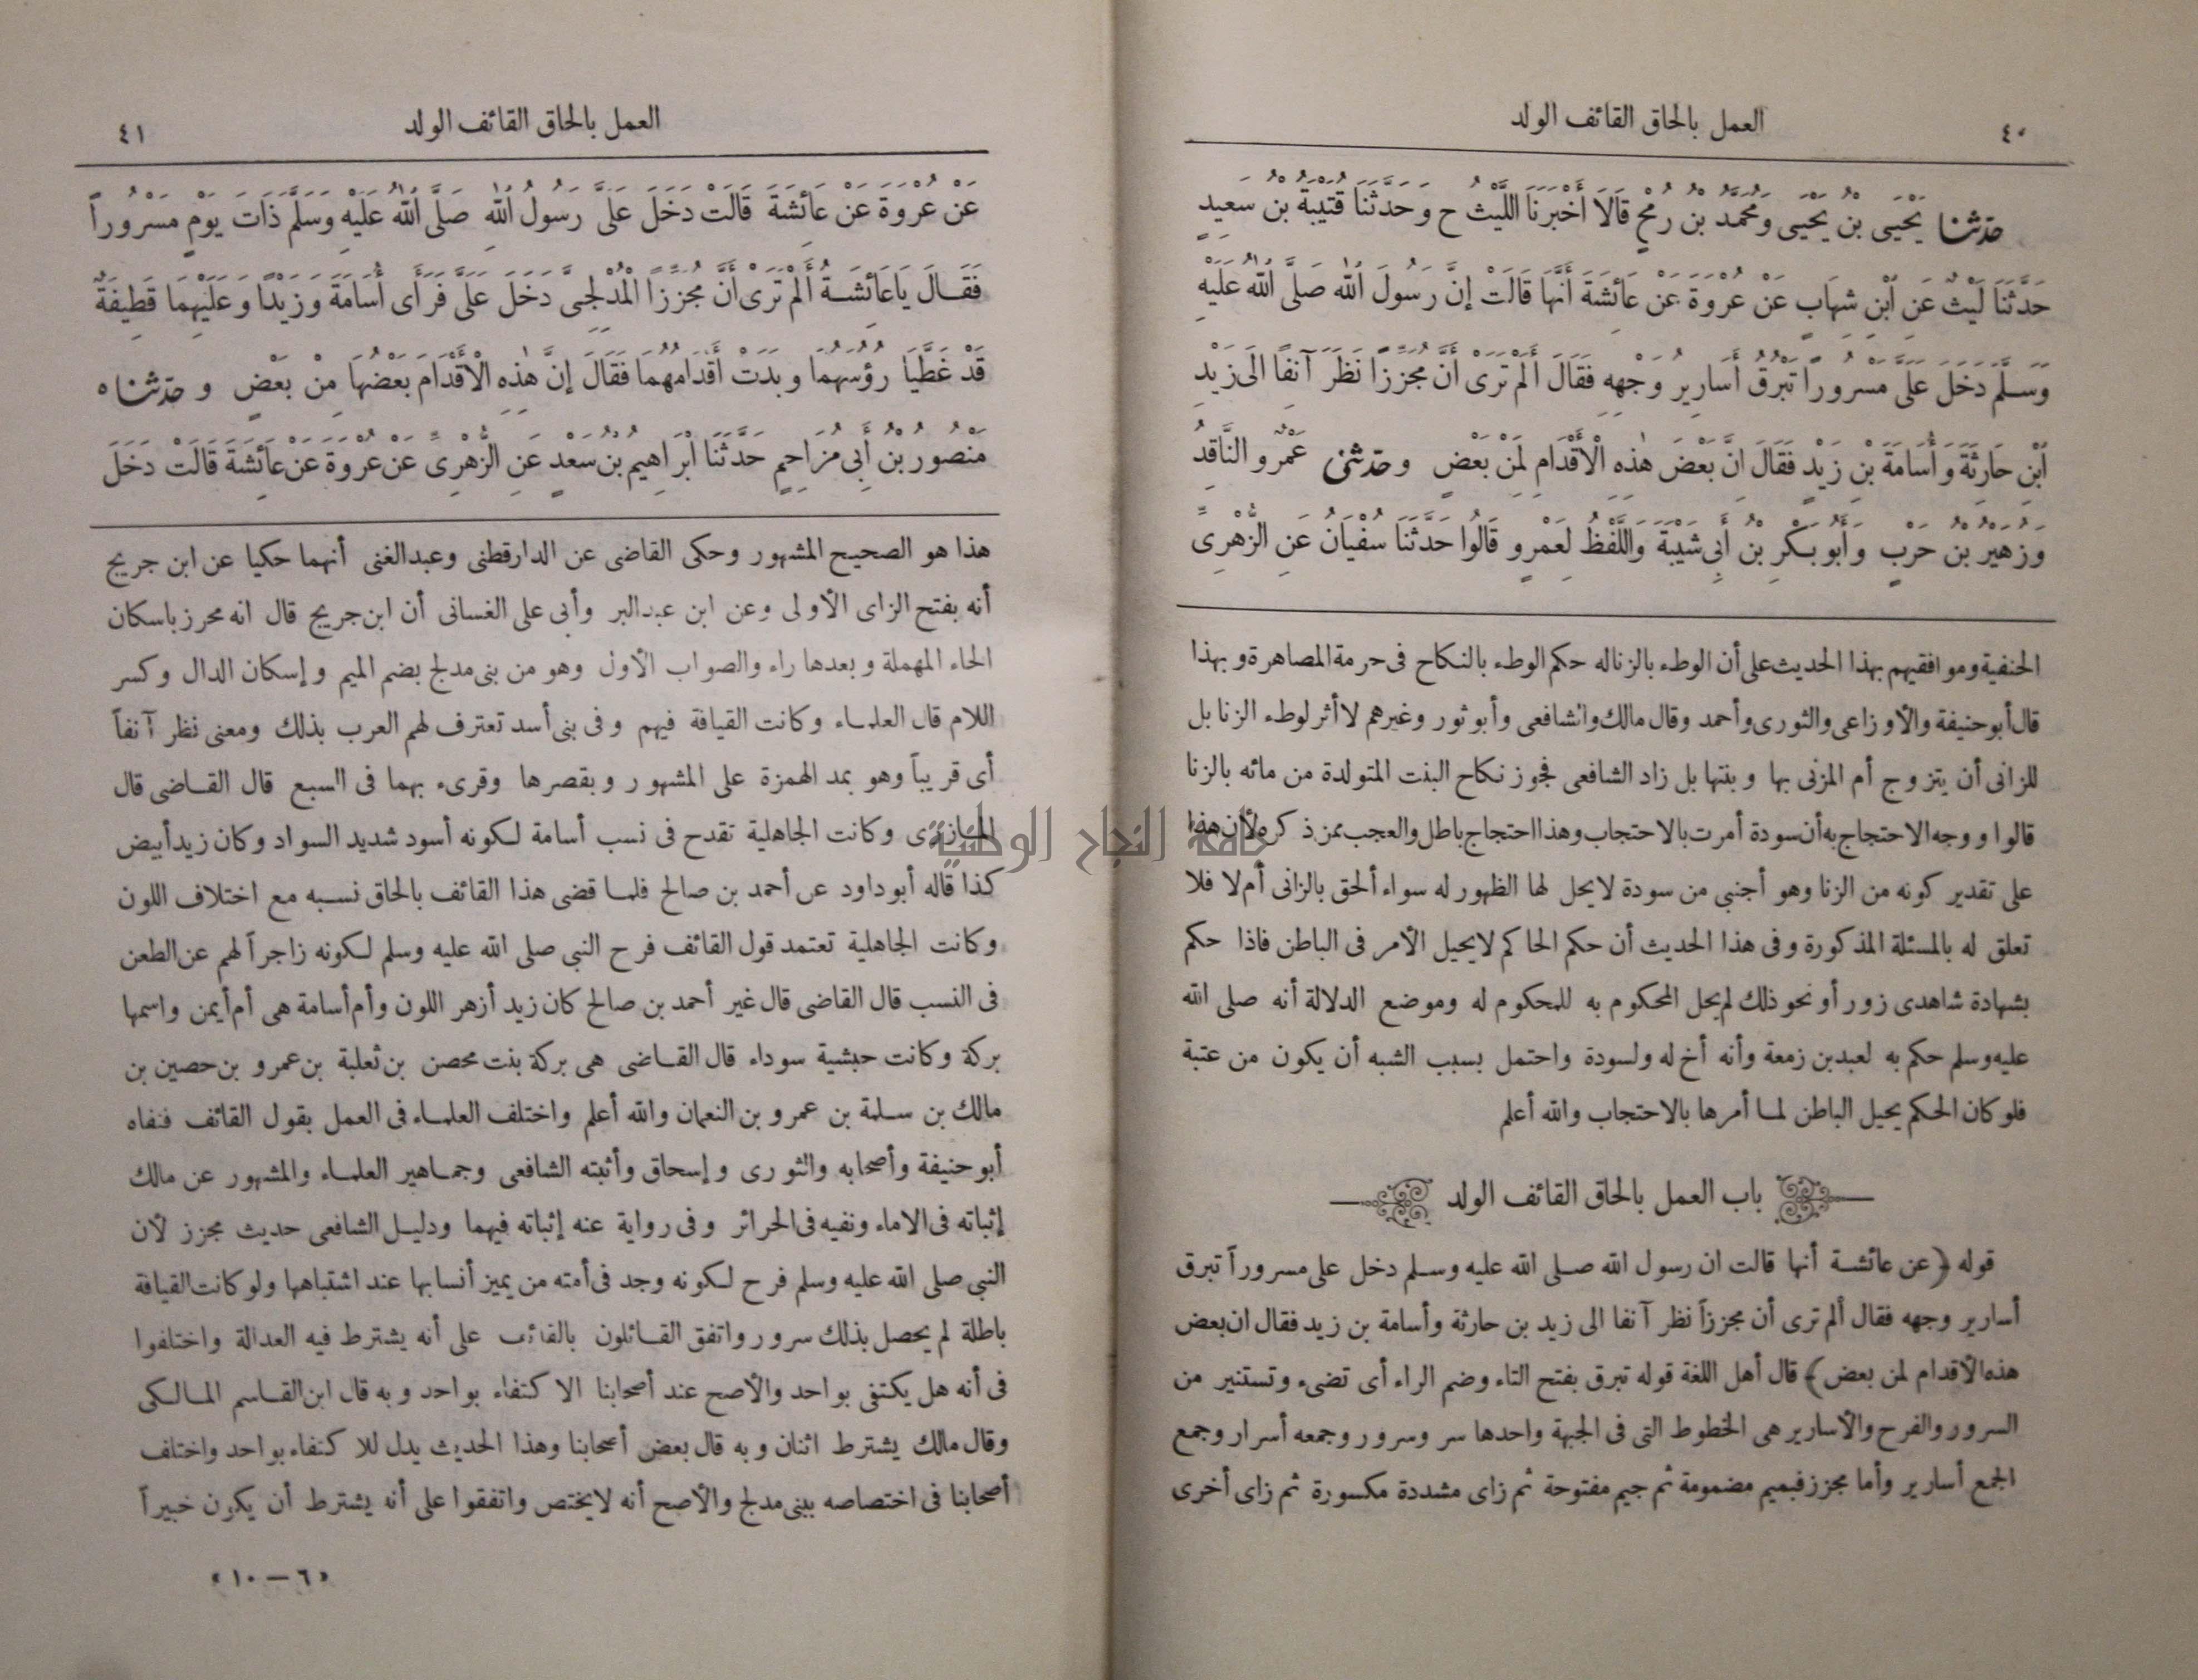 العمل بالحاق القائف الولد
٤٠
حدثنا يَحْيَى بْنُ يَحْيَى وَمُحَمَّدُ بْنُ رُمْحٍ قَالَا أَخْبَرَنَا اللَّيْثُ ح وَحَدَّثَنَا قُتَيْبَةُ بْنُ سَعِيدٍ
حَدَّثَنَا لَيْثٌ عَنِ ابْنِ شِهَابٍ عَنْ عُرْوَةَ عَنْ عَائِشَةَ أَنَّهَا قَالَتْ إِنَّ رَسُولَ اللّٰهِ صَلَّى اللّٰهُ عَلَيْهِ
وَسَلَّمَ دَخَلَ عَلَىَّ مَسْرُورًا تَبْرُقُ أَسَارِيرُ وَجْهِهِ فَقَالَ أَلَمْ تَرَىْ أَنَّ مُجَزِّزًا نَظَرَ آنِفًا إِلَى زَيْدِ
ابْنِ حَارِثَةَ وَأُسَامَةَ بْنِ زَيْدٍ فَقَالَ إِنَّ بَعْضَ هٰذِهِ الْأَقْدَامِ لَمِنْ بَعْضٍ وحدثنى عَمْرٌو النَّاقِدُ
وَزُهَيْرُ بْنُ حَرْبٍ وَأَبُو بَكْرِ بْنُ أَبِى شَيْبَةَ وَاللَّفْظُ لِعَمْرٍو قَالُوا حَدَّثَنَا سُفْيَانُ عَنِ الزُّهْرِىِّ
الحنفية وموافقيهم بهذا الحديث على أن الوطء بالزنا له حكم الوطء بالنكاح فى حرمة المصاهرة وبهذا
قال أبو حنيفة والأوزاعى والثورى وأحمد وقال مالك والشافعى وأبو ثور وغيرهم لا أثر لوطء الزنا بل
للزانى أن يتزوج أم المزنى بها وبنتها بل زاد الشافعى فجوز نكاح البنت المتولدة من مائه بالزنا
قالوا ووجه الاحتجاج به أن سودة أمرت بالاحتجاب وهذا احتجاج باطل والعجب ممن ذكره لأن هذا
على تقدير كونه من الزنا وهو أجنبي من سودة لا يحل لها الظهور له سواء ألحق بالزانى أم لا فلا
تعلق له بالمسئلة المذكورة وفى هذا الحديث أن حكم الحاكم لا يحيل الأمر فى الباطن فاذا حكم
بشهادة شاهدى زور أو نحو ذلك لم يحل المحكوم به للمحكوم له وموضع الدلالة أنه صلى الله
عليه وسلم حكم به لعبد بن زمعة وأنه أخ له ولسودة واحتمل بسبب الشبه أن يكون من عتبة
فلو كان الحكم يحيل الباطن لما أمرها بالاحتجاب والله أعلم
باب العمل بالحاق القائف الولد
قوله ﴿عن عائشة أنها قالت ان رسول الله صلى الله عليه وسلم دخل على مسروراً تبرق
أسارير وجهه فقال ألم ترى أن مجززاً نظر آنفا الى زيد بن حارثة وأسامة بن زيد فقال ان بعض
هذه الأقدام لمن بعض﴾ قال أهل اللغة قوله تبرق بفتح التاء وضم الراء أى تضىء وتستنير من
السرور والفرح والأسارير هى الخطوط التى فى الجبهة واحدها سر وسرور وجمعه أسرار وجمع
الجمع أسارير وأما مجزز فبميم مضمومة ثم جيم مفتوحة ثم زاى مشددة مكسورة ثم زاى أخرى
العمل بالحاق القائف الولد
٤١
عَنْ عُرْوَةَ عَنْ عَائِشَةَ قَالَتْ دَخَلَ عَلَىَّ رَسُولُ اللّٰهِ صَلَّى اللّٰهُ عَلَيْهِ وَسَلَّمَ ذَاتَ يَوْمٍ مَسْرُوراً
فَقَالَ يَا عَائِشَةُ أَلَمْ تَرَىْ أَنَّ مُجَزِّزًا الْمُدْلِجِىَّ دَخَلَ عَلَىَّ فَرَأَى أُسَامَةَ وَزَيْدًا وَعَلَيْهِمَا قَطِيفَةٌ
قَدْ غَطَّيَا رُؤُسَهُمَا وَبَدَتْ أَقْدَامُهُمَا فَقَالَ إِنَّ هٰذِهِ الْأَقْدَامَ بَعْضُهَا مِنْ بَعْضٍ و حدثناه
مَنْصُورُ بْنُ أَبِى مُزَاحِمٍ حَدَّثَنَا إِبْرَاهِيمُ بْنُ سَعْدٍ عَنِ الزُّهْرِىِّ عَنْ عُرْوَةَ عَنْ عَائِشَةَ قَالَتْ دَخَلَ
هذا هو الصحيح المشهور وحكى القاضى عن الدارقطنى وعبد الغنى أنهما حكيا عن ابن جريج
أنه بفتح الزاى الأولى وعن ابن عبد البر وأبى على الغسانى أن ابن جريج قال انه محرز باسكان
الحاء المهملة وبعدها راء والصواب الأول وهو من بنى مدلج بضم الميم وإسكان الدال وكسر
اللام قال العلماء وكانت القيافة فيهم وفى بنى أسد تعترف لهم العرب بذلك ومعنى نظر آنفاً
أى قريباً وهو بمد الهمزة على المشهور وبقصرها وقرىء بهما فى السبع قال القاضى قال
المازرى وكانت الجاهلية تقدح فى نسب أسامة لكونه أسود شديد السواد وكان زيد أبيض
كذا قاله أبو داود عن أحمد بن صالح فلما قضى هذا القائف بالحاق نسبه مع اختلاف اللون
وكانت الجاهلية تعتمد قول القائف فرح النبى صلى الله عليه وسلم لكونه زاجراً لهم عن الطعن
فى النسب قال القاضى قال غير أحمد بن صالح كان زيد أزهر اللون وأم أسامة هى أم أيمن واسمها
بركة وكانت حبشية سوداء قال القاضى هى بركة بنت محصن بن ثعلبة بن عمرو بن حصين بن
مالك بن سلمة بن عمرو بن النعمان والله أعلم واختلف العلماء فى العمل بقول القائف فنفاه
أبو حنيفة وأصحابه والثورى وإسحاق وأثبته الشافعى وجماهير العلماء والمشهور عن مالك
إثباته فى الاماء ونفيه فى الحرائر وفى رواية عنه إثباته فيهما ودليل الشافعى حديث مجزز لأن
النبى صلى الله عليه وسلم فرح لكونه وجد فى أمته من يميز أنسابها عند اشتباهها ولو كانت القيافة
باطلة لم يحصل بذلك سرور واتفق القائلون بالقائف على أنه يشترط فيه العدالة واختلفوا
فى أنه هل يكتفى بواحد والأصح عند أصحابنا الاكتفاء بواحد وبه قال ابن القاسم المالكى
وقال مالك يشترط اثنان وبه قال بعض أصحابنا وهذا الحديث يدل للاكتفاء بواحد واختلف
أصحابنا فى اختصاصه ببنى مدلج والأصح أنه لا يختص واتفقوا على أنه يشترط أن يكون خبيراً
«٦ — ١٠»
جامعة النجاح الوطنية